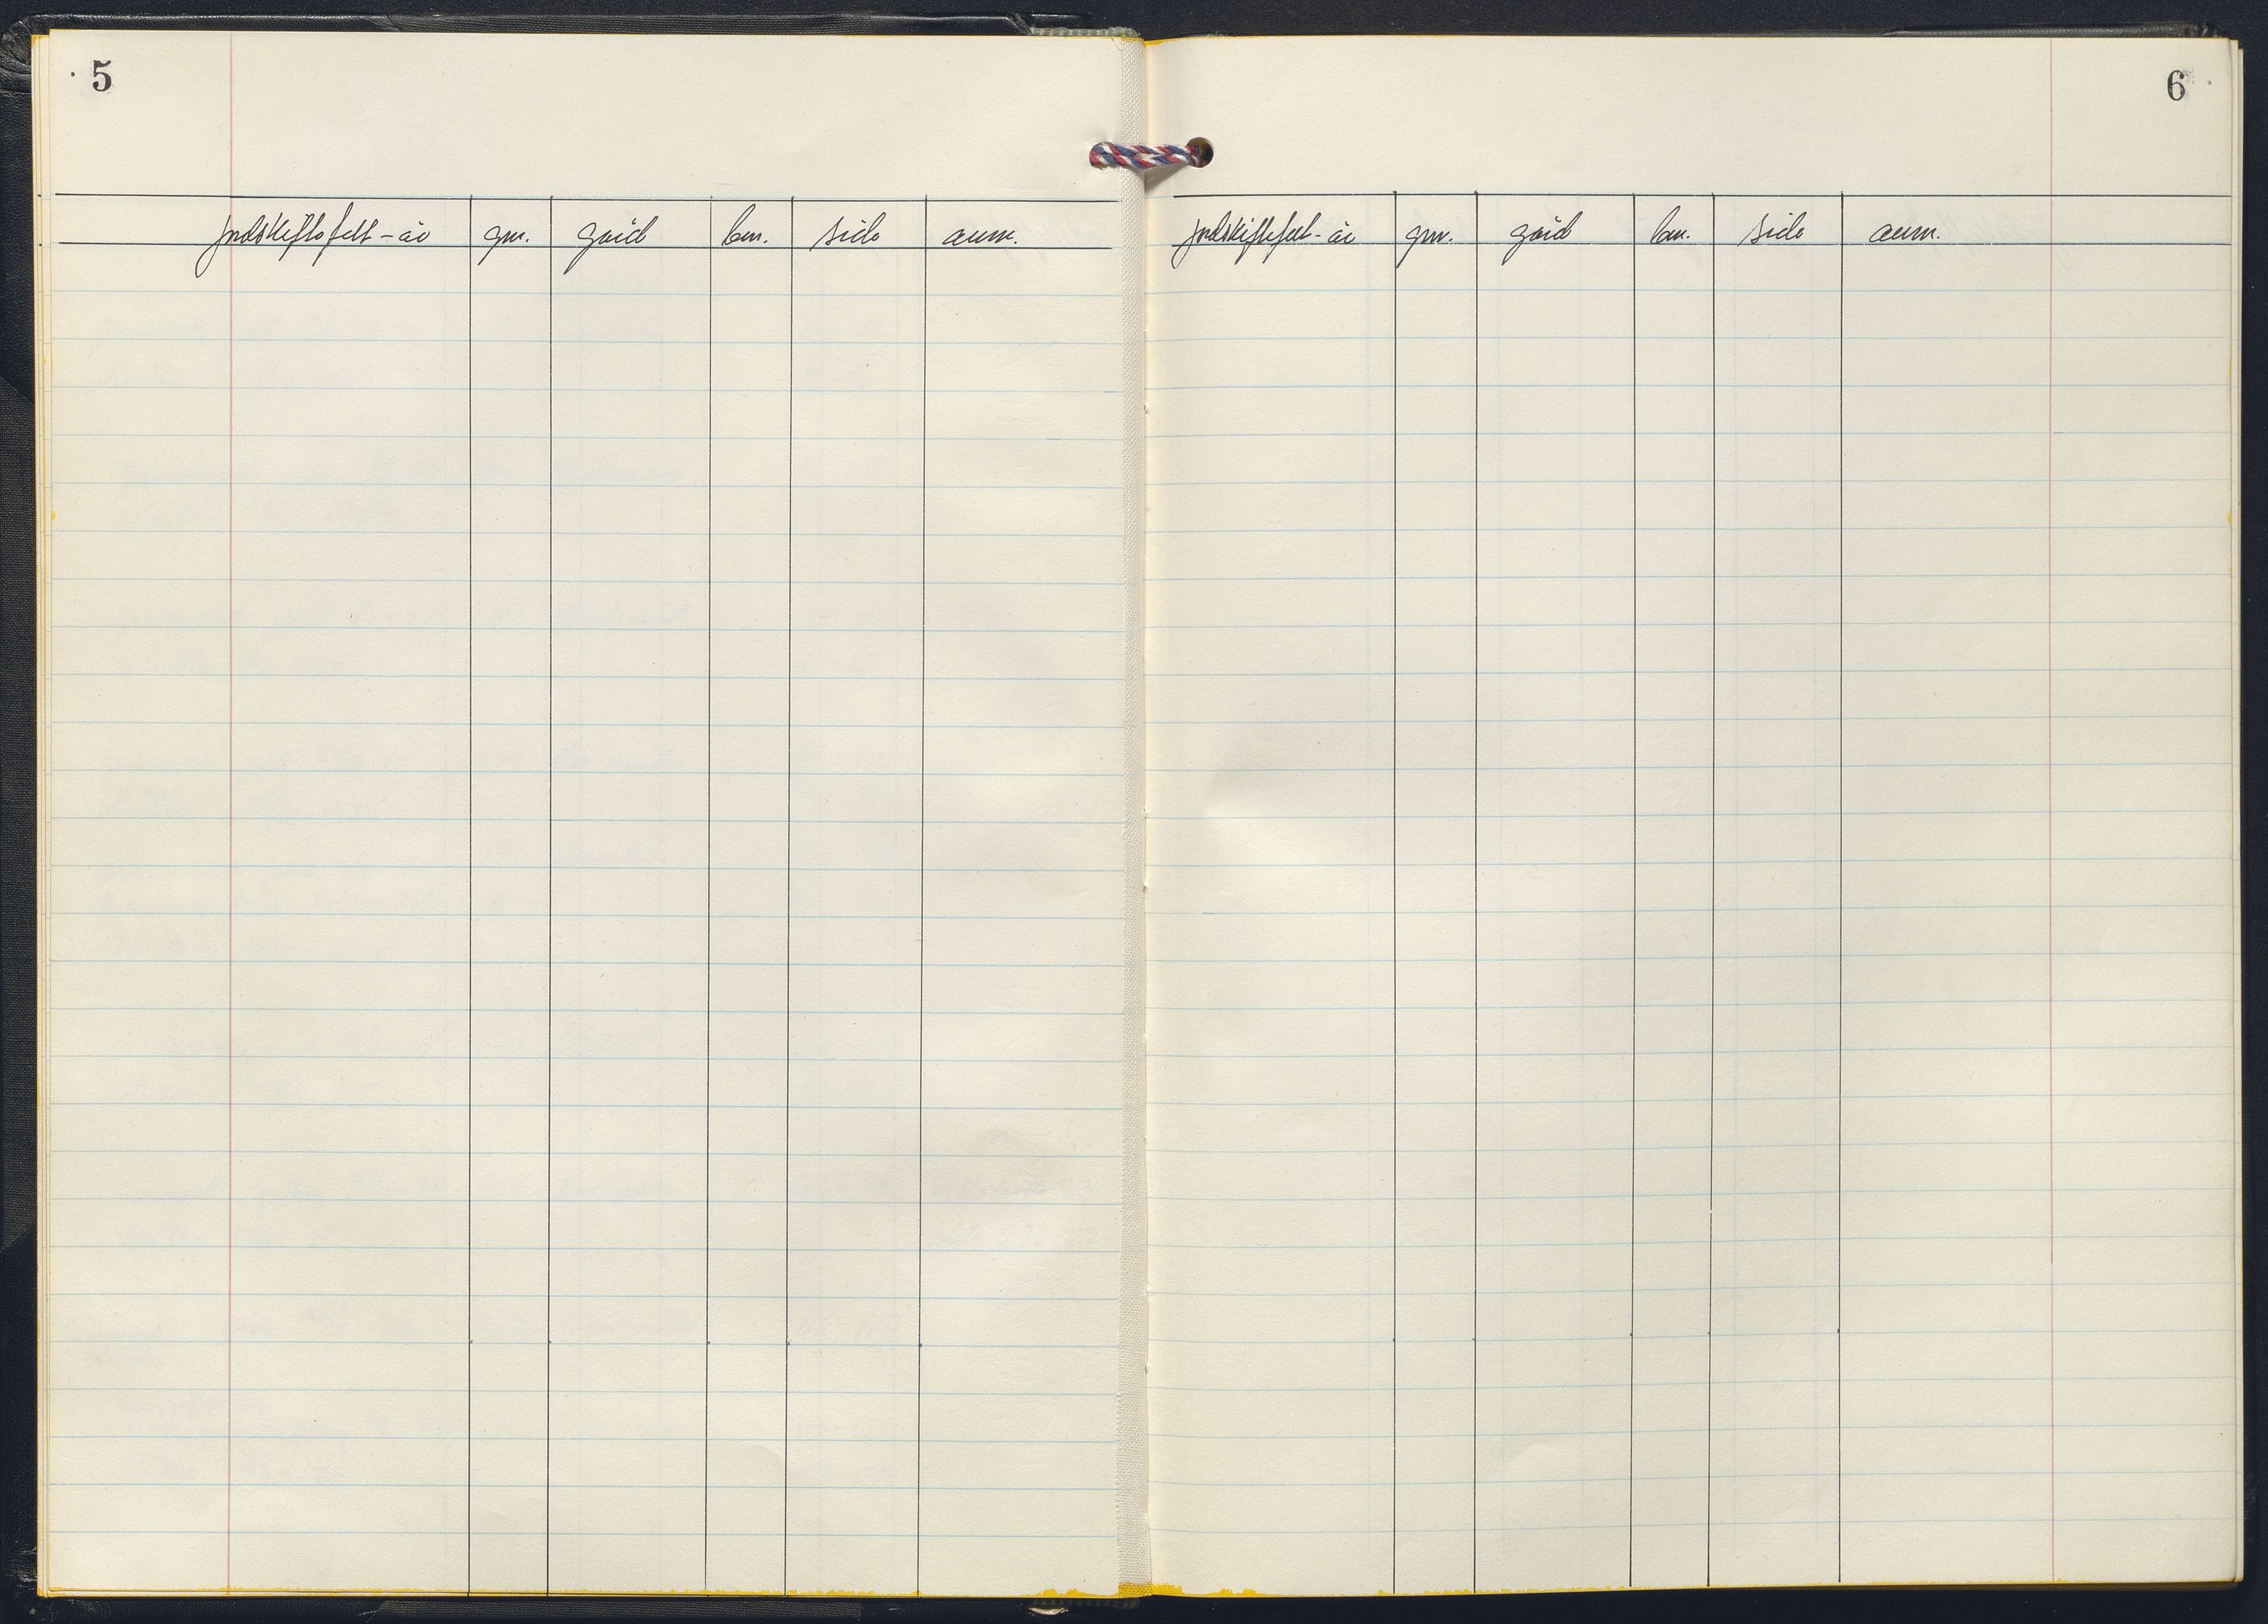 5
jordskiftefelt - år gnr. gård bnr. side anm.
6
jordskiftefelt - år gnr. gård bnr. side anm.